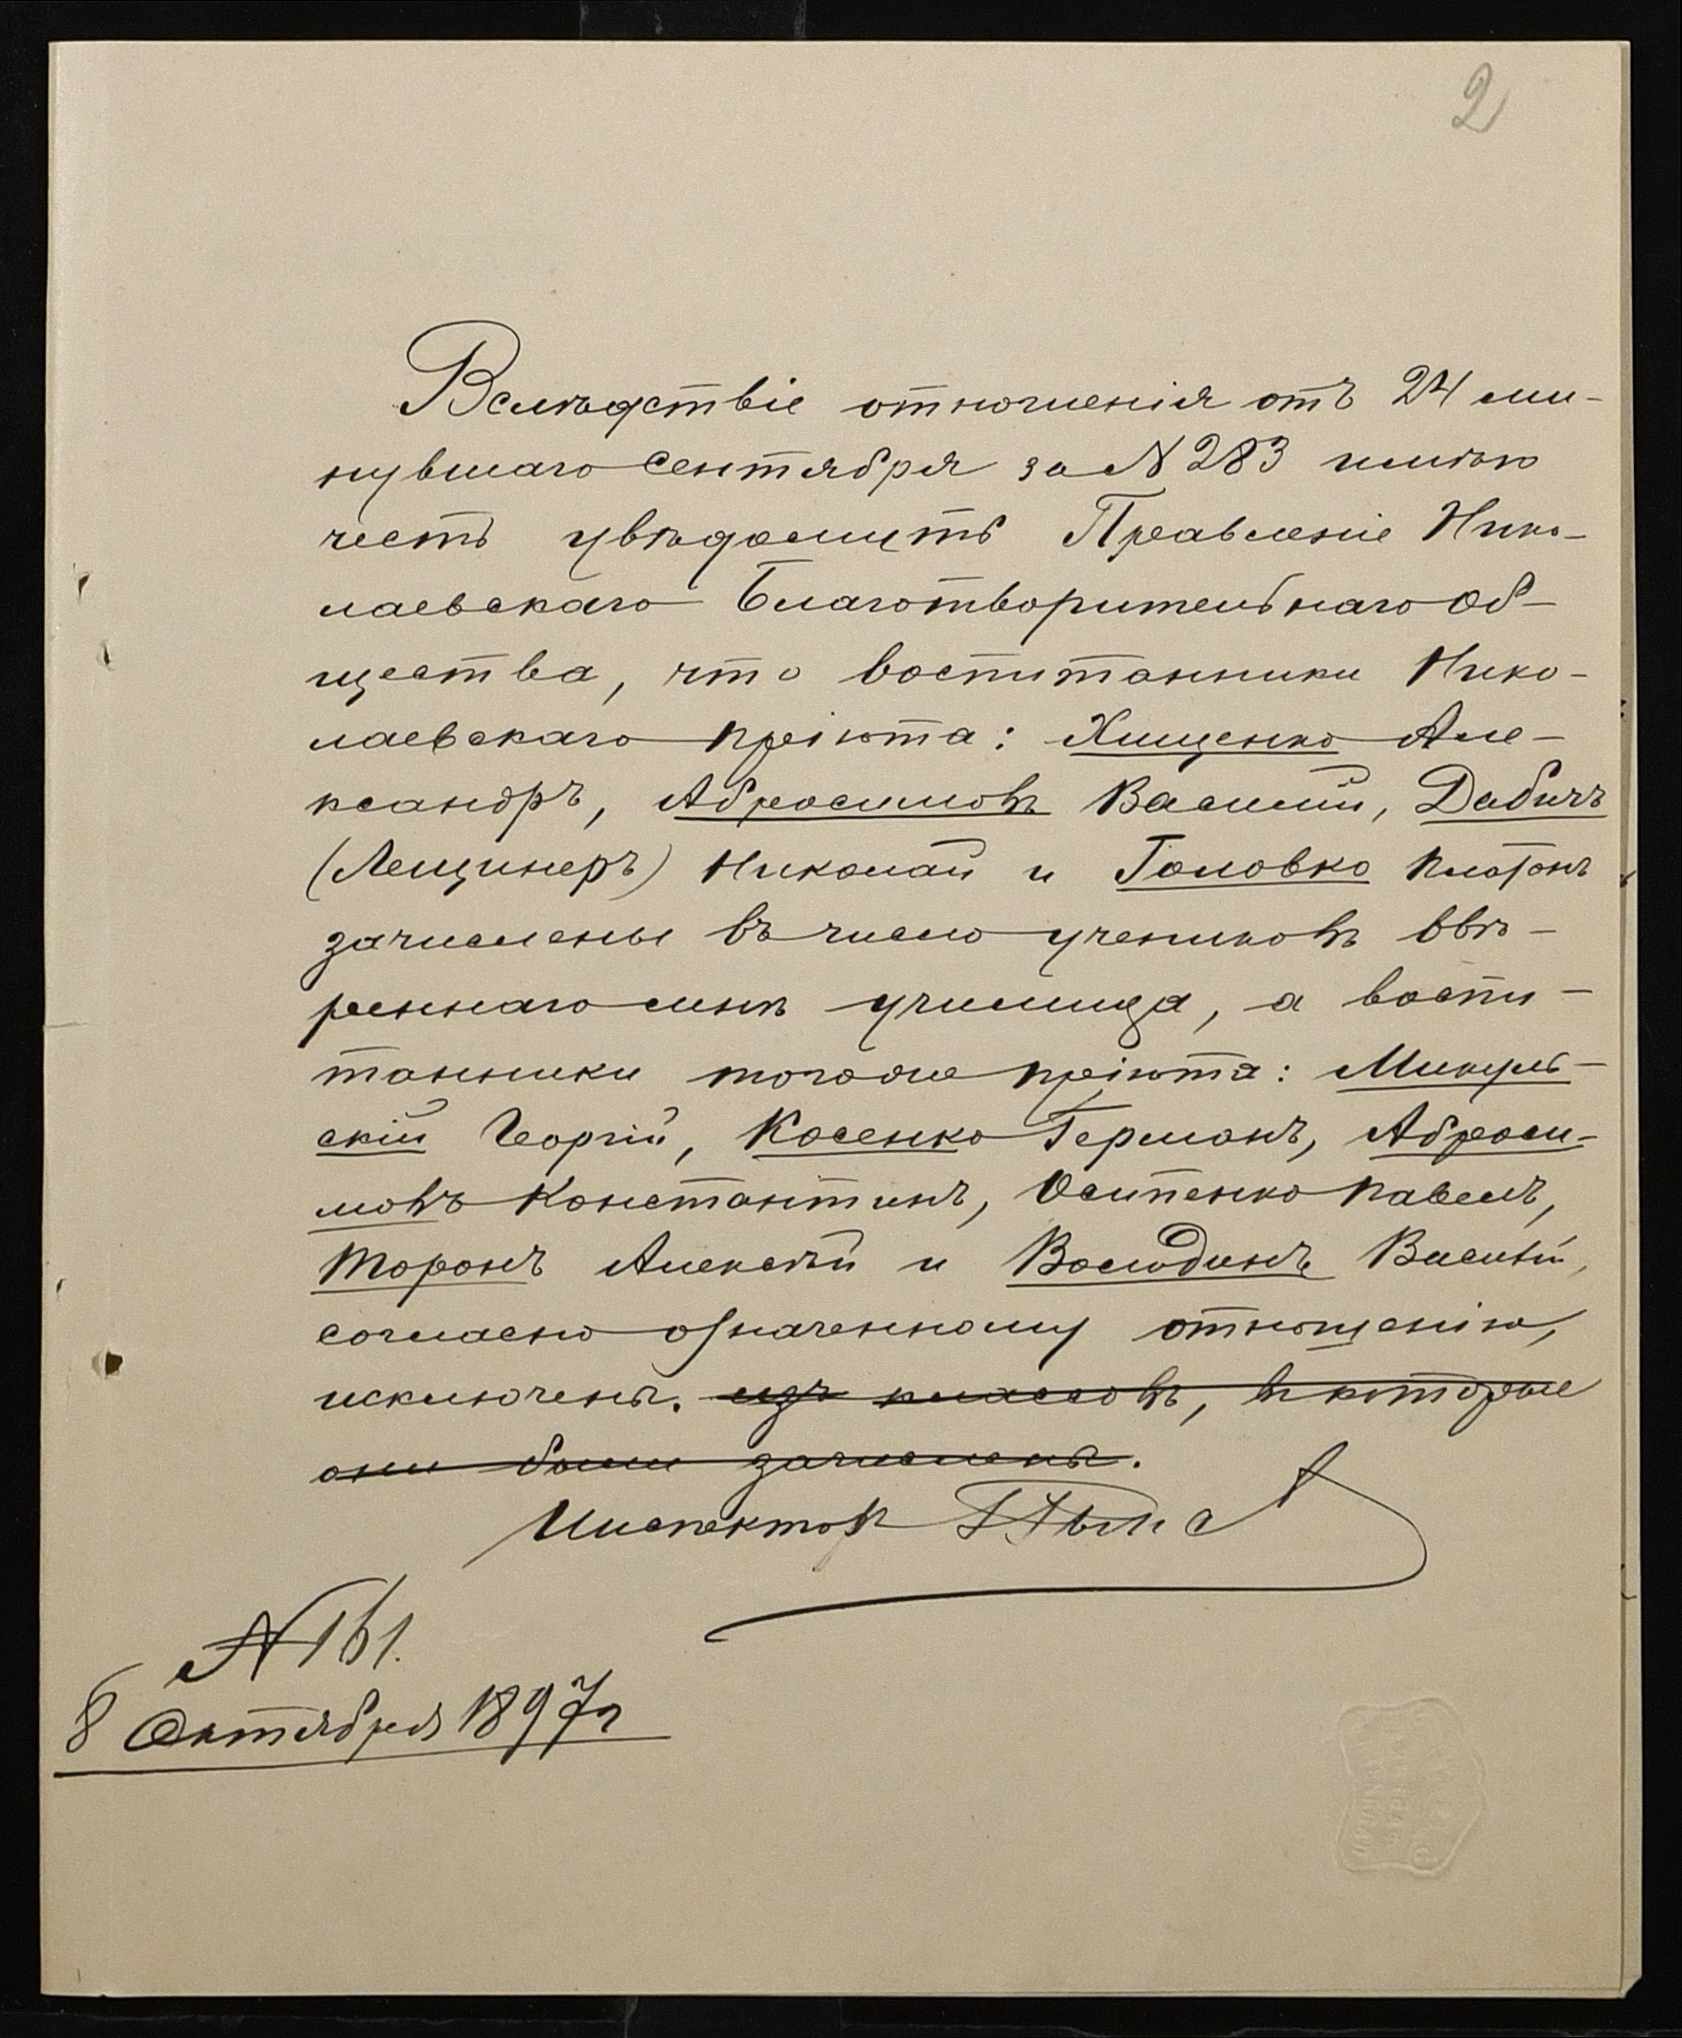 2
Вслѣдствіе отношенія отъ 24 ми-
нувшаго Сентября за № 283 имѣю
честь увѣдомить Правленіе Нико-
лаевскаго Благотворительнаго Об-
щества, что воспитанники Нико-
лаевскаго пріюта: Хищенко Але-
ксандръ, Абросимовъ Василій, Дабичъ
(Лещинеръ) Николай и Головко Платонъ
зачислены въ число учениковъ ввѣ-
реннаго мнѣ училища, а воспи-
танники того же пріюта: Микуль-
скій Георгій, Косенко Германъ, Аброси-
мовъ Константинъ, Осипенко Павелъ,
Торонъ Алексѣй и Володинъ Василій,
согласно означенному отношенію,
исключены. изъ классовъ, въ которые
они были зачислены.
Инспекторъ
№ 161.
8 Октября 1897 г